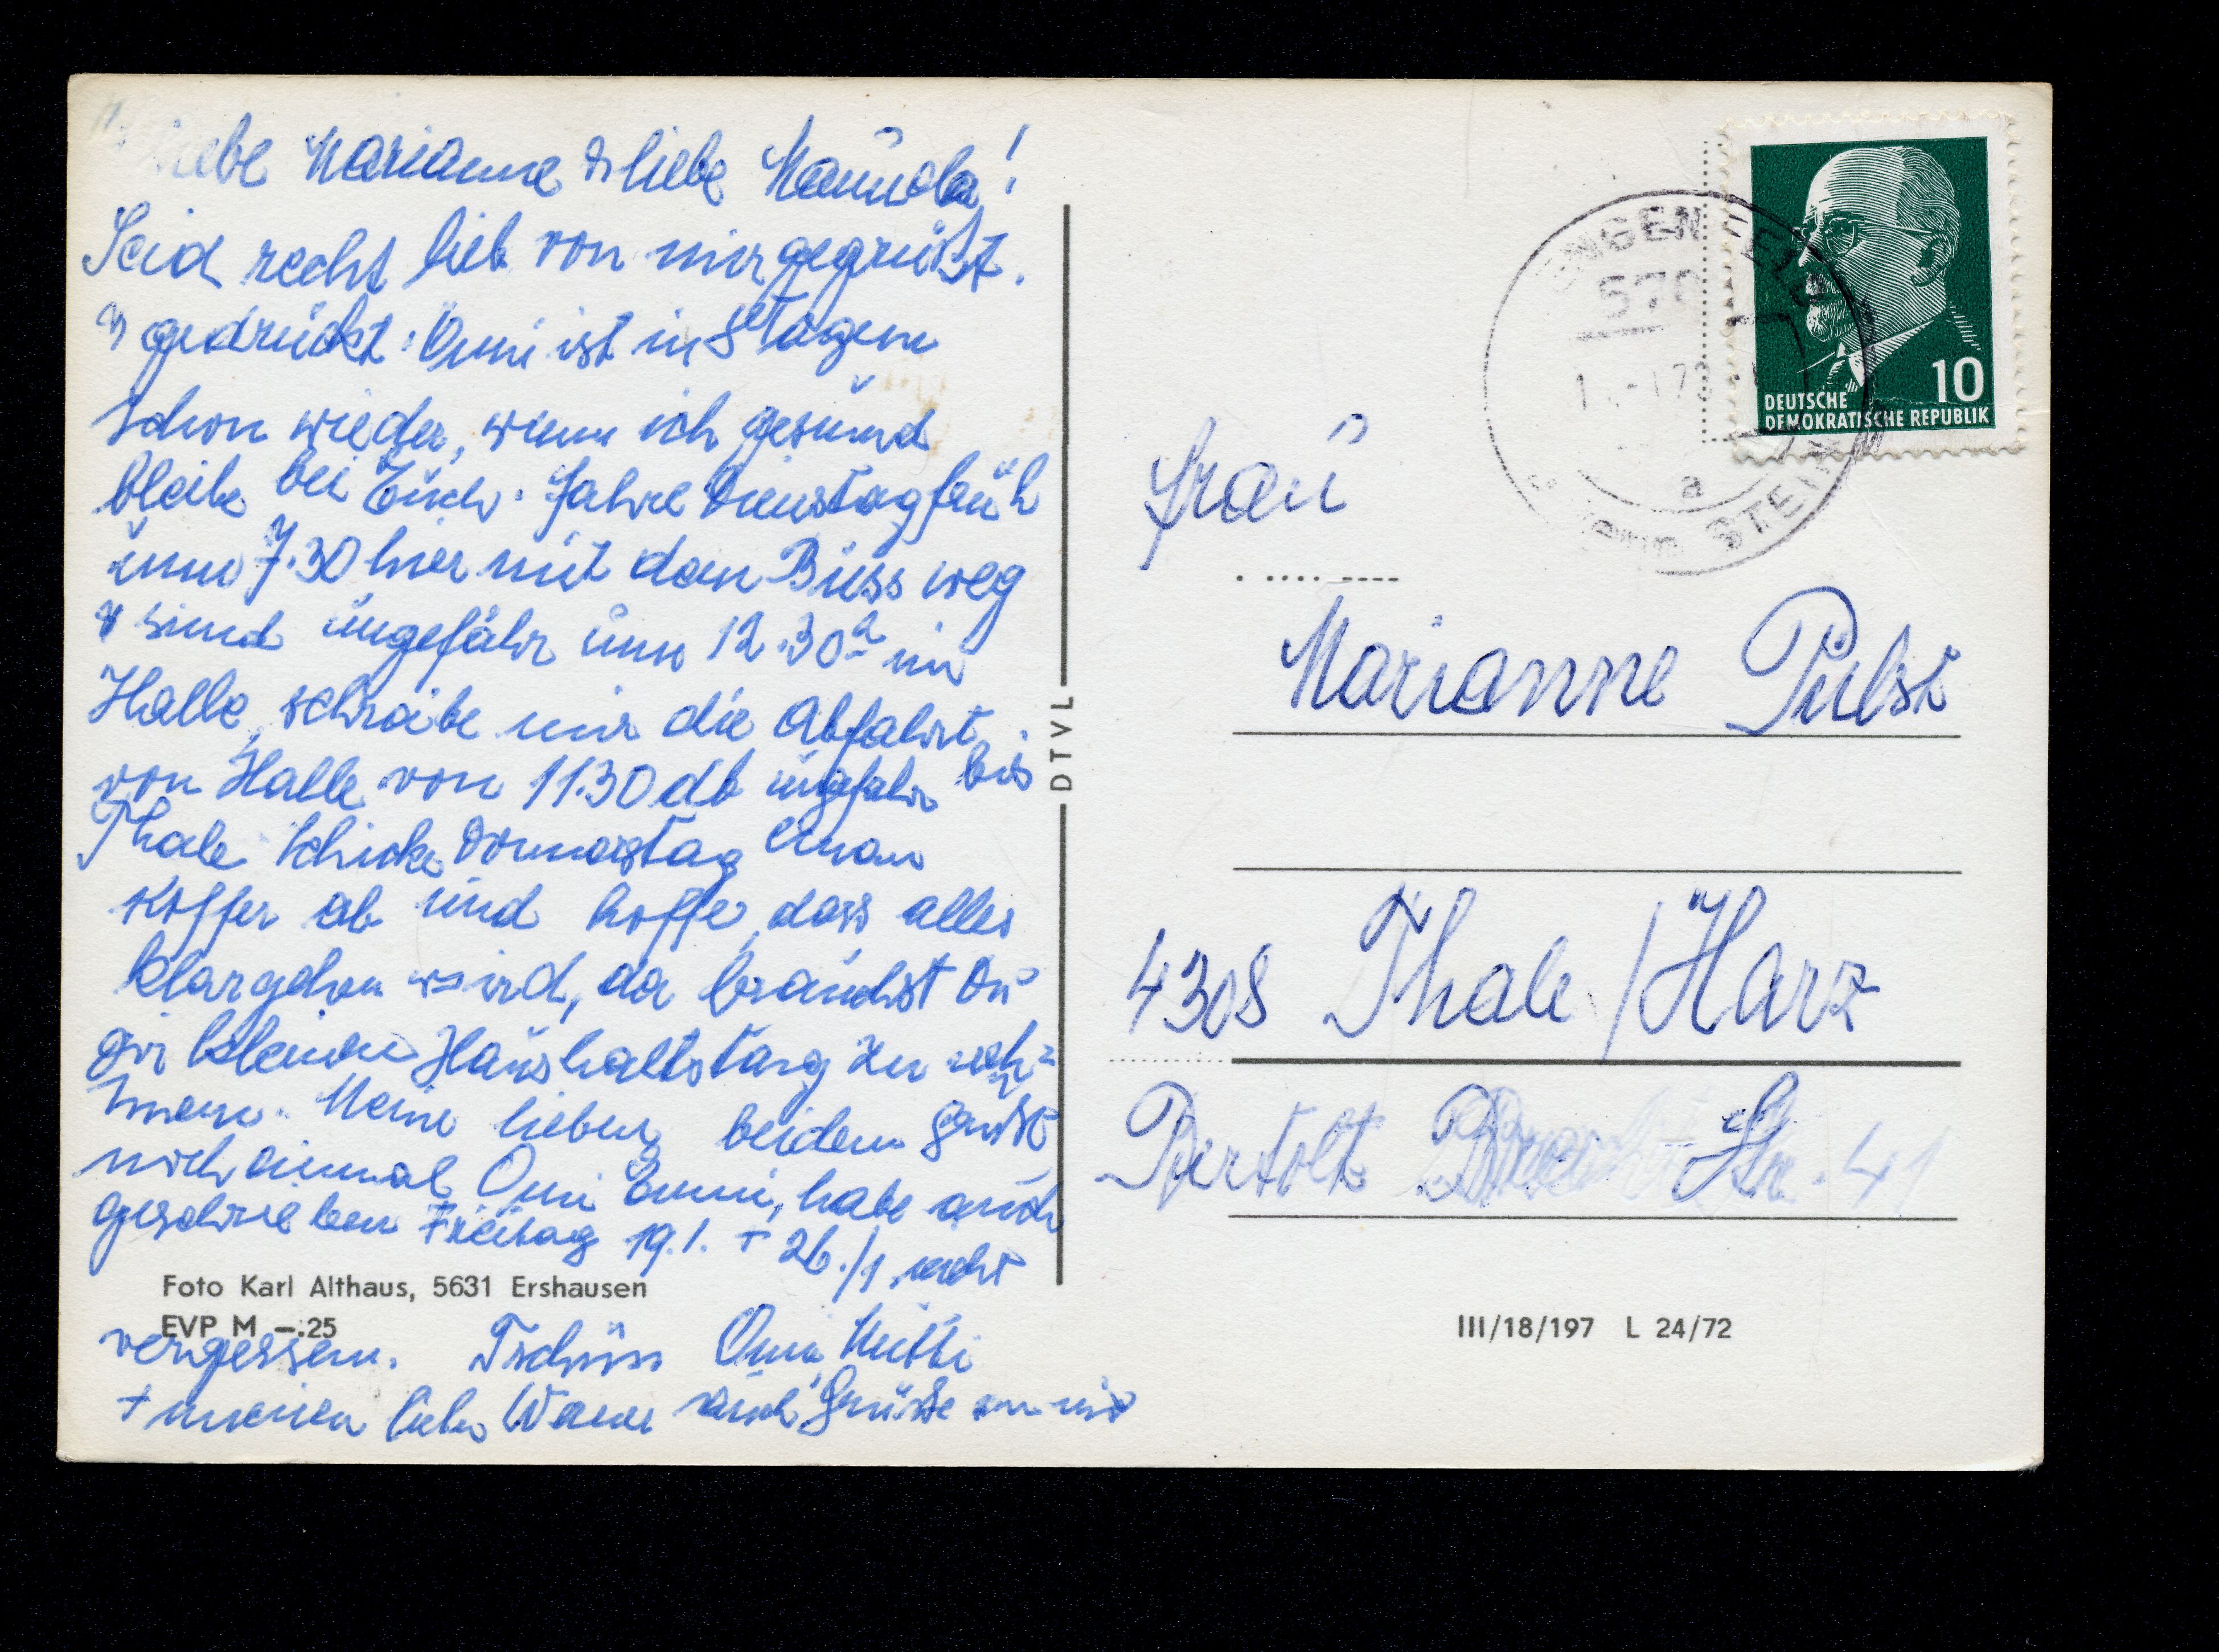 liebe Marianne & liebe Manuela!
Seid recht lieb von mir gegrüßt.
& gedrückt. Omi ist in 8 Tagen
schon wieder, wenn ich gesund
bleibe bei Euch. Fahre Dienstag früh
um 7.30 hier mit dem Buss weg
& sind ungefähr um 12.30 in
Halle, schreibe mir die Abfahrt
von Halle von 11.30 ab ungefähr bis
Thale schicke Donnerstag einen
Koffer ab und hoffe, dass alles
klargehen wird, da brauchst Du
gir kleinen Haushaltstag zu neh=
men. Meine lieben beiden Grüße
noch einmal Omi Emmi, habe auch
geschrieben Freitag 19.1. + 26./1. nicht
Foto Karl Althaus, 5631 Ershausen
EVP M —.25
vergessen. Tschüss Omi Mutti
+ meinen lieben auch Grüße von mir
DTVL
DEUTSCHE
DEMOKRATISCHE REPUBLIK
10
LENGENFELD
STEIN
a
Frau
Marianne Pulst
4308 Thale/Harz
Bertolt Brecht-Str. 41
III/18/197 L 24/72